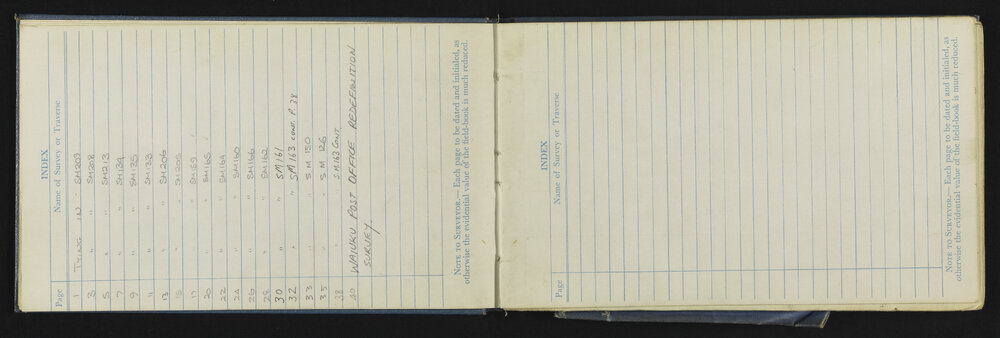 INDEX
Page Name of Survey or Traverse
1 TYING IN SM209
3 " " SM208
5 " " SM213
7 " " SM134
9 " " SM135
11 " " SM133
13 " " SM206
15 " " SM205
17 " " SM159
20 " " SM165
22 " " SM164
24 " " SM160
26 " " SM166
28 " " SM162
30 " " SM161
32 " " SM163 cont. P. 38
33 " " SM 130
35 " " SM 126
38 " " SM163 Cont
40 WAIUKU POST OFFICE REDEFINITION
SURVEY.
NOTE TO SURVEYOR.— Each page to be dated and initialed, as
otherwise the evidential value of the field-book is much reduced.
INDEX
Page Name of Survey or Traverse
NOTE TO SURVEYOR.— Each page to be dated and initialed, as
otherwise the evidential value of the field-book is much reduced.